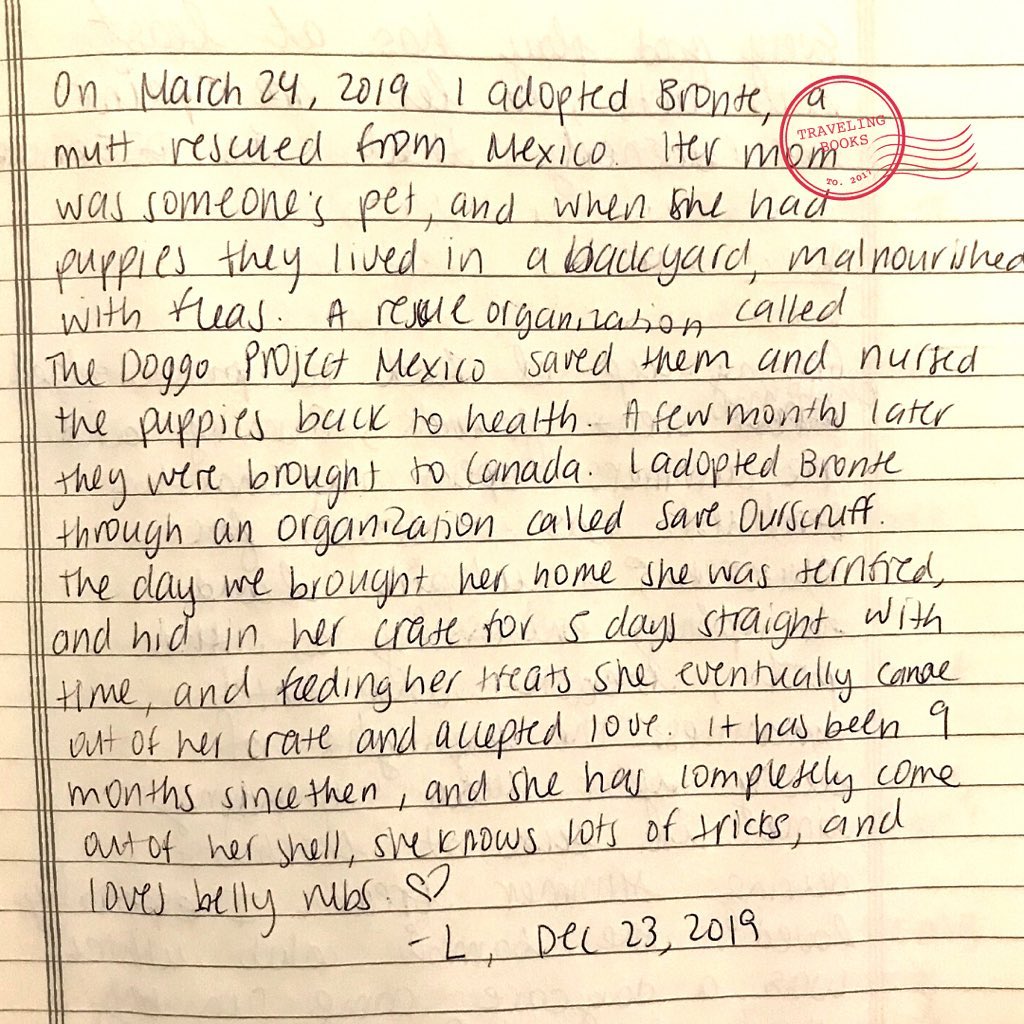 On March 24, 2019 I adopted Bronte, a
mutt rescued from Mexico. Her mom
was someone's pet, and when she had
puppies they lived in a backyard, malnourished
with fleas. A rescue organization called
The Doggo Project Mexico saved them and nursed
the puppies back to health. A few months later
they were brought to Canada. I adopted Bronte
through an organization called Save Ourscruff.
The day we brought her home she was terrified,
and hid in her crate for 5 days straight. With
time, and feeding her treats she eventually came
out of her crate and accepted love. It has been 9
months since then, and she has completely come
out of her shell, she knows lots of tricks, and
loves belly rubs. ♡
- L, Dec 23, 2019
TRAVELING
BOOKS
TO. 2017